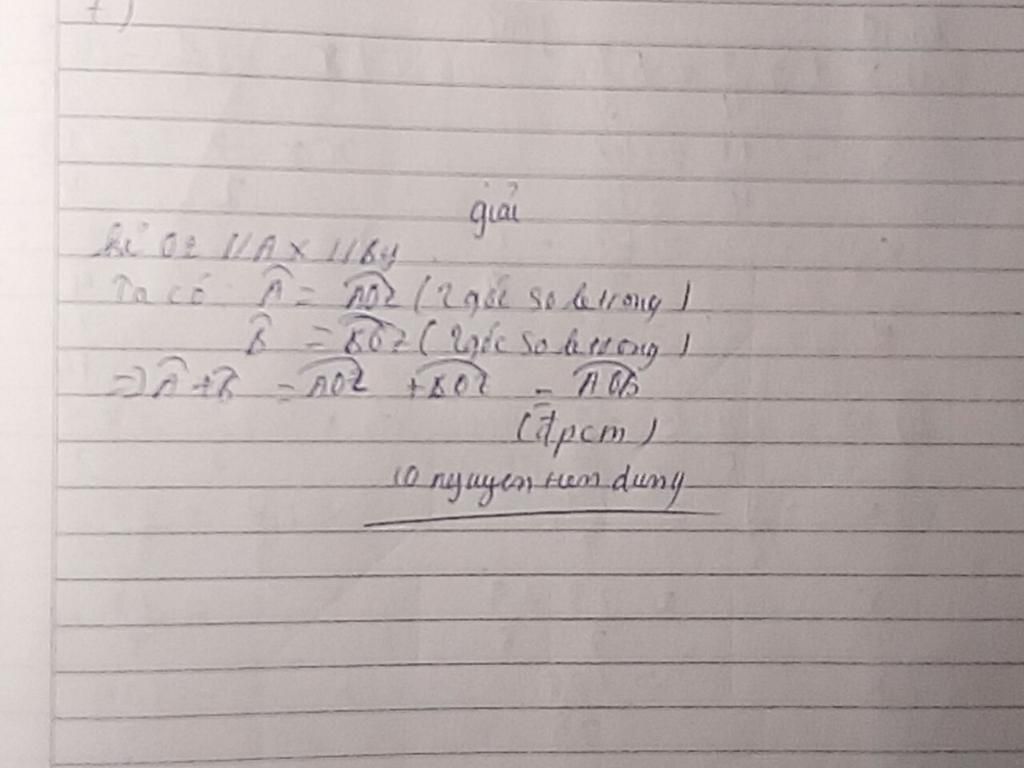 7)
giải
kẻ Oz // Ax // By
Ta có Â = AOz (2 góc so le trong)
B̂ = BOz (2 góc so le trong)
=> Â + B̂ = AOz + BOz = AOB
(đpcm)
nguyen dung